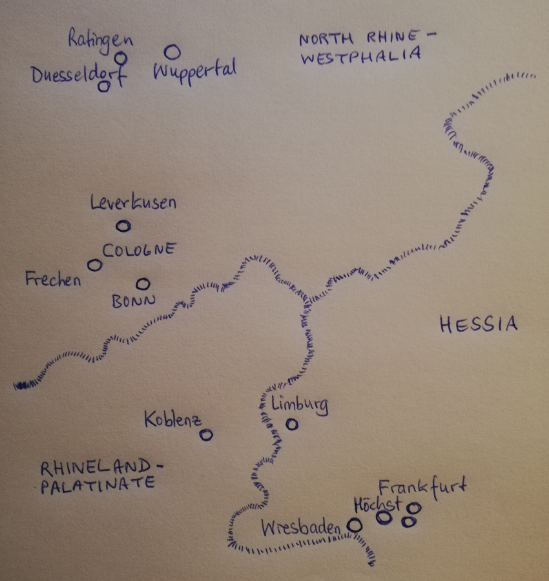 Ratingen
NORTH RHINE-
WESTPHALIA
Duesseldorf
Wuppertal
Leverkusen
COLOGNE
Frechen
BONN
HESSIA
Limburg
Koblenz
RHINELAND-
PALATINATE
Frankfurt
Höchst
Wiesbaden